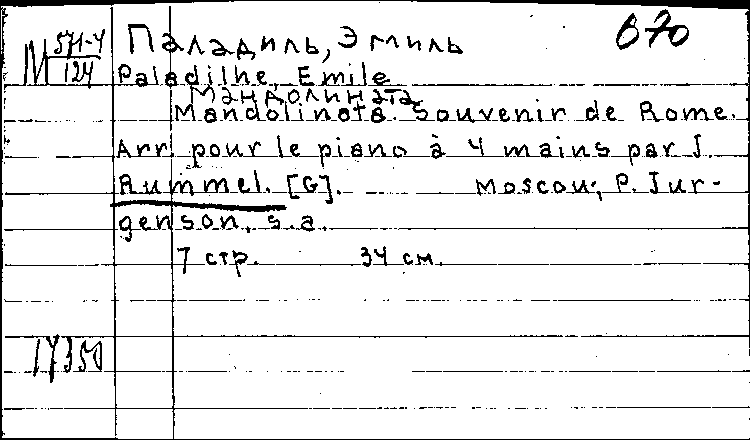 М 571-4/124 Паладиль, Эмиль 670
Paladilhe, Emile
Мандолината
Mandolinata. Souvenir de Rome.
Arr. pour le piano à 4 mains par J.
Rummel. [G]. Moscou, P. Jur-
genson, s.a.
7 стр. 34 см.
17350